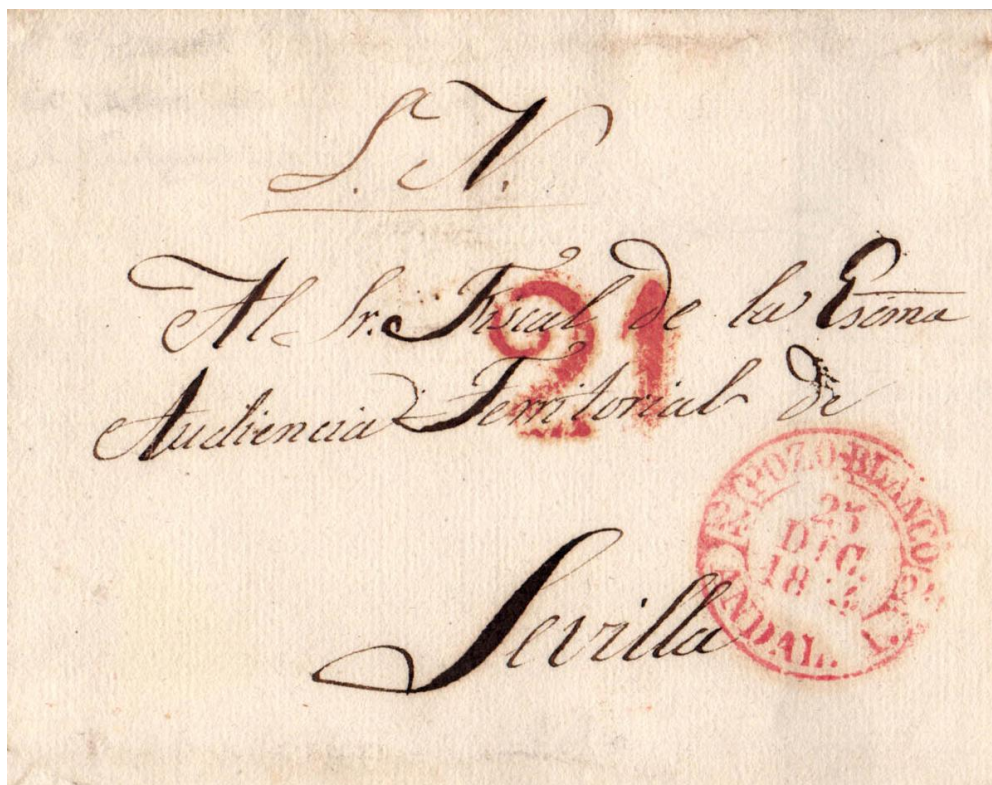 S. N.
Al Sr. Fiscal de la Esema
Audiencia Territorial de
Sevilla
21
POZO-BLANCO
25
DIC.
18
ANDAL.